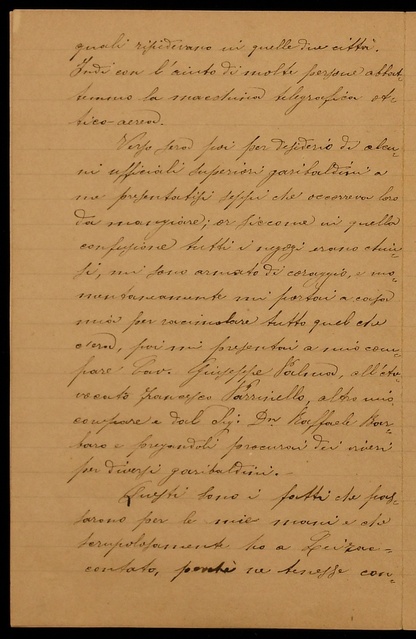 quali risiedevano in quelle due città.
Indi con l'aiuto di molte persone abbat-
temmo la macchina telegrafica ot-
tico-aerea.
Verso sera poi per desiderio di alcu-
ni ufficiali superiori garibaldini a
me presentatisi seppi che occorreva loro
da mangiare; or siccome in quella
confusione tutti i negozi erano chiu-
si, mi sono armato di coraggio, e mo-
mentaneamente mi portai a casa
mia per racimolare tutto quel che
c'era, poi mi presentai a mio com-
pare Cav. Giuseppe Palma, all'Av-
vocato Francesco Parrinello, altro mio
compare e dal Sig. Dn Raffaele Bar-
baro e pregandoli procurai dei viveri
per diversi garibaldini.
Questi sono i fatti che pas-
sarono per le mie mani e che
scrupolosamente ho a
contato, perchè ne tenesse con-